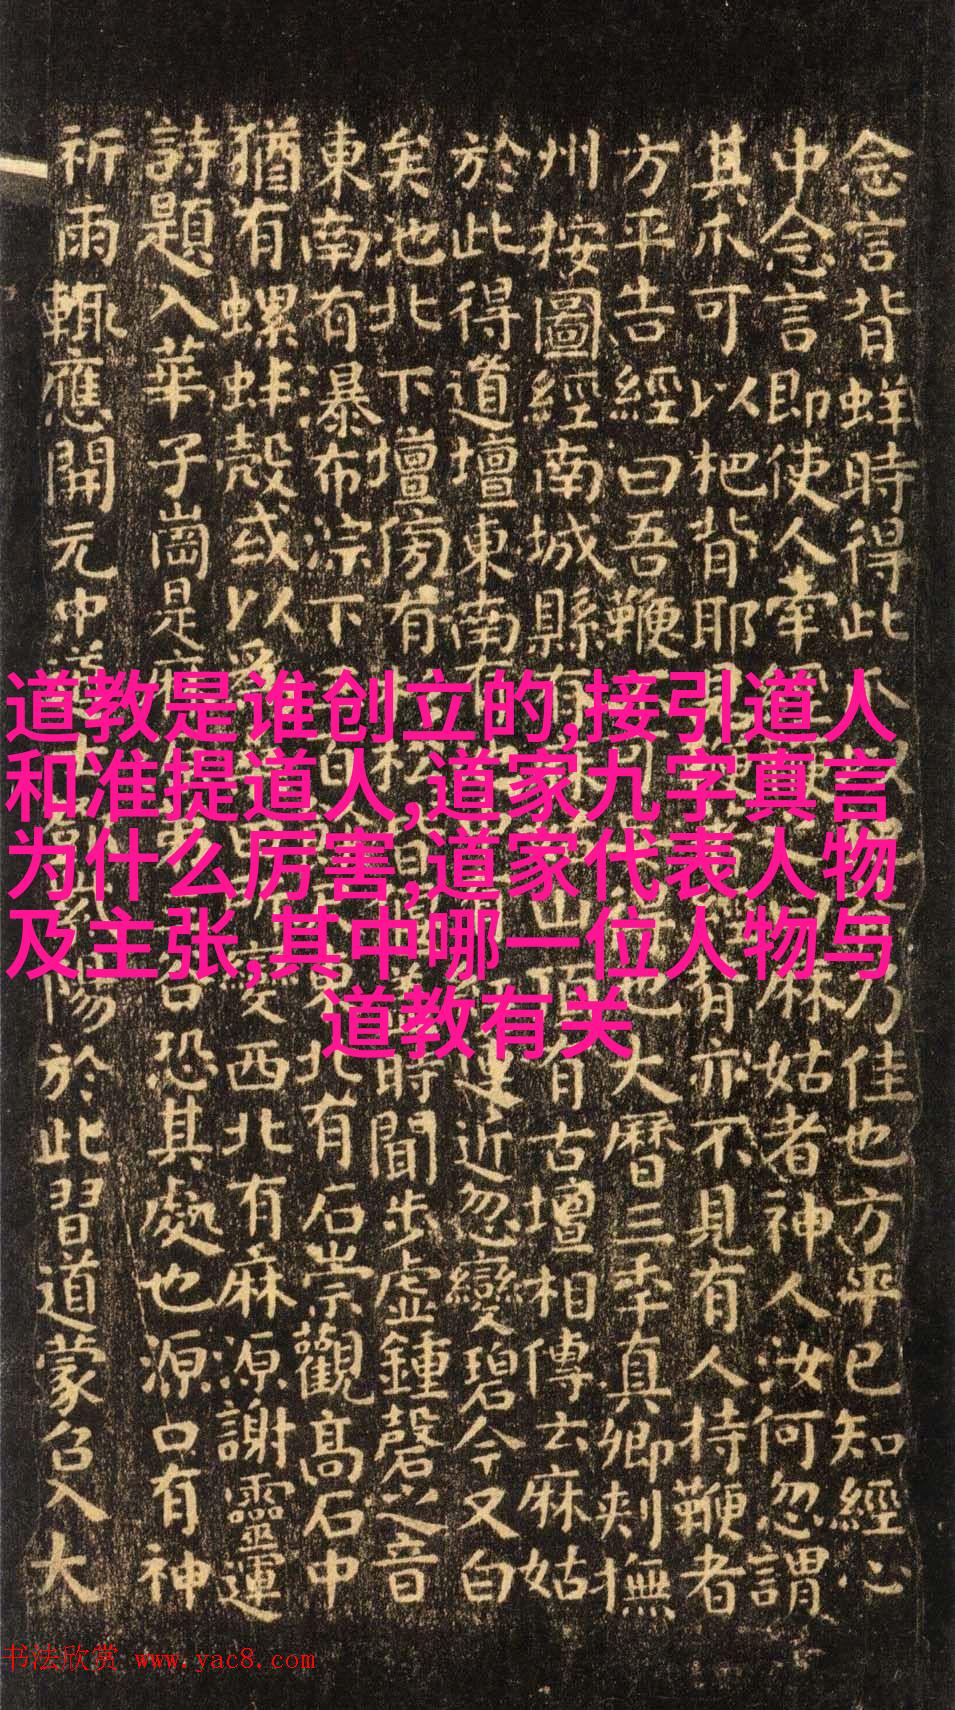 念言背蛘時得此爪以乃佳也方平已知經心
中念言即使人牽麻姑者神人汝何忽謂
其爪可以杷背耶有亦不見有人持鞭者
方平告經曰吾鞭也大曆三年真卿刾撫
州按圖經南城縣有山頂有古壇相傳云麻姑
於此得道壇東南有蓮近忽變碧今又白
矣池北下壇傍有松蓋時聞步虛鍾磬之音
東南有瀑布淙下百東北有石崇觀高石中
猶有螺蚌殼或以變西北有麻源謝靈運
詩題入華子崗是麻谷恐其處也源口有神
祈雨輒應開元中道士陽於此習道蒙召入大
道教是谁创立的,接引道人
和准提道人,道家九字真言
为什么厉害,道家代表人物
及主张,其中哪一位人物与
道教有关
书法欣赏 www.yac8.com